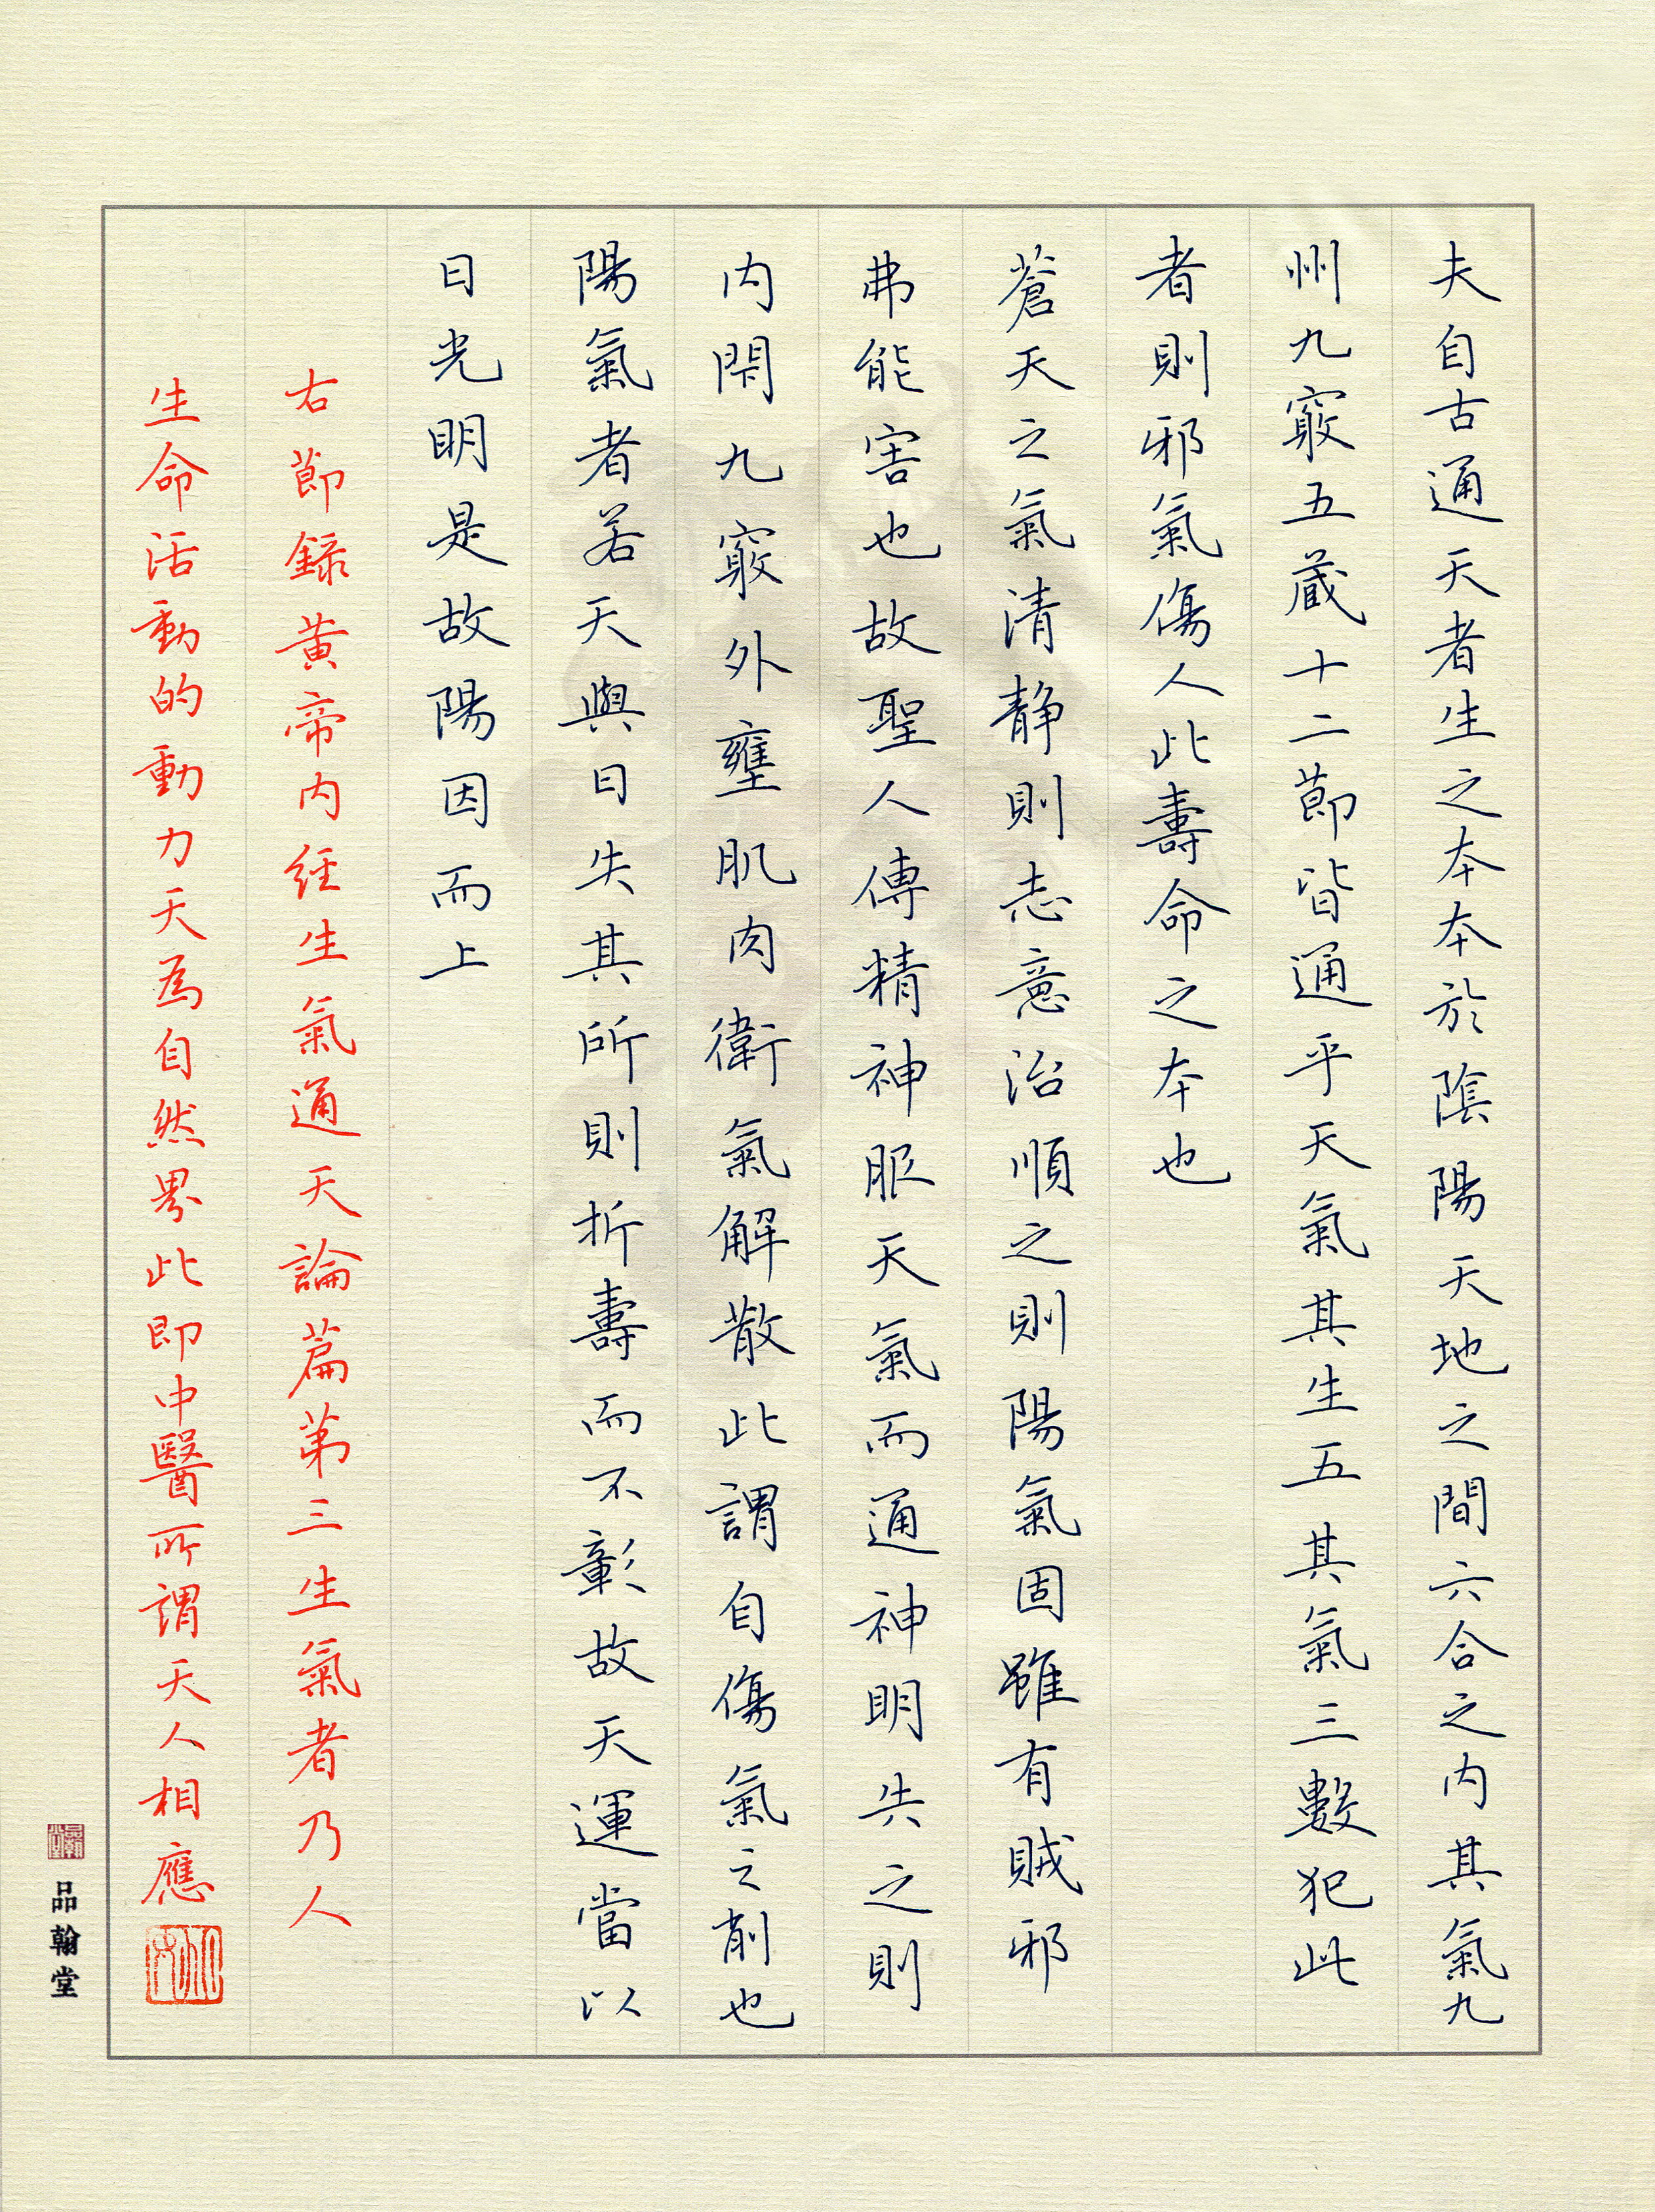 夫自古通天者生之本本於陰陽天地之間六合之内其氣九
州九竅五藏十二節皆通乎天氣其生五其氣三數犯此
者則邪氣傷人此壽命之本也
蒼天之氣清静則志意治順之則陽氣固雖有賊邪
弗能害也故聖人傳精神服天氣而通神明失之則
内閉九竅外壅肌肉衛氣解散此謂自傷氣之削也
陽氣者若天與日失其所則折壽而不彰故天運當以
日光明是故陽因而上
右節錄黃帝内經生氣通天論篇第三生氣者乃人
生命活動的動力天為自然界此即中醫所謂天人相應
品翰堂